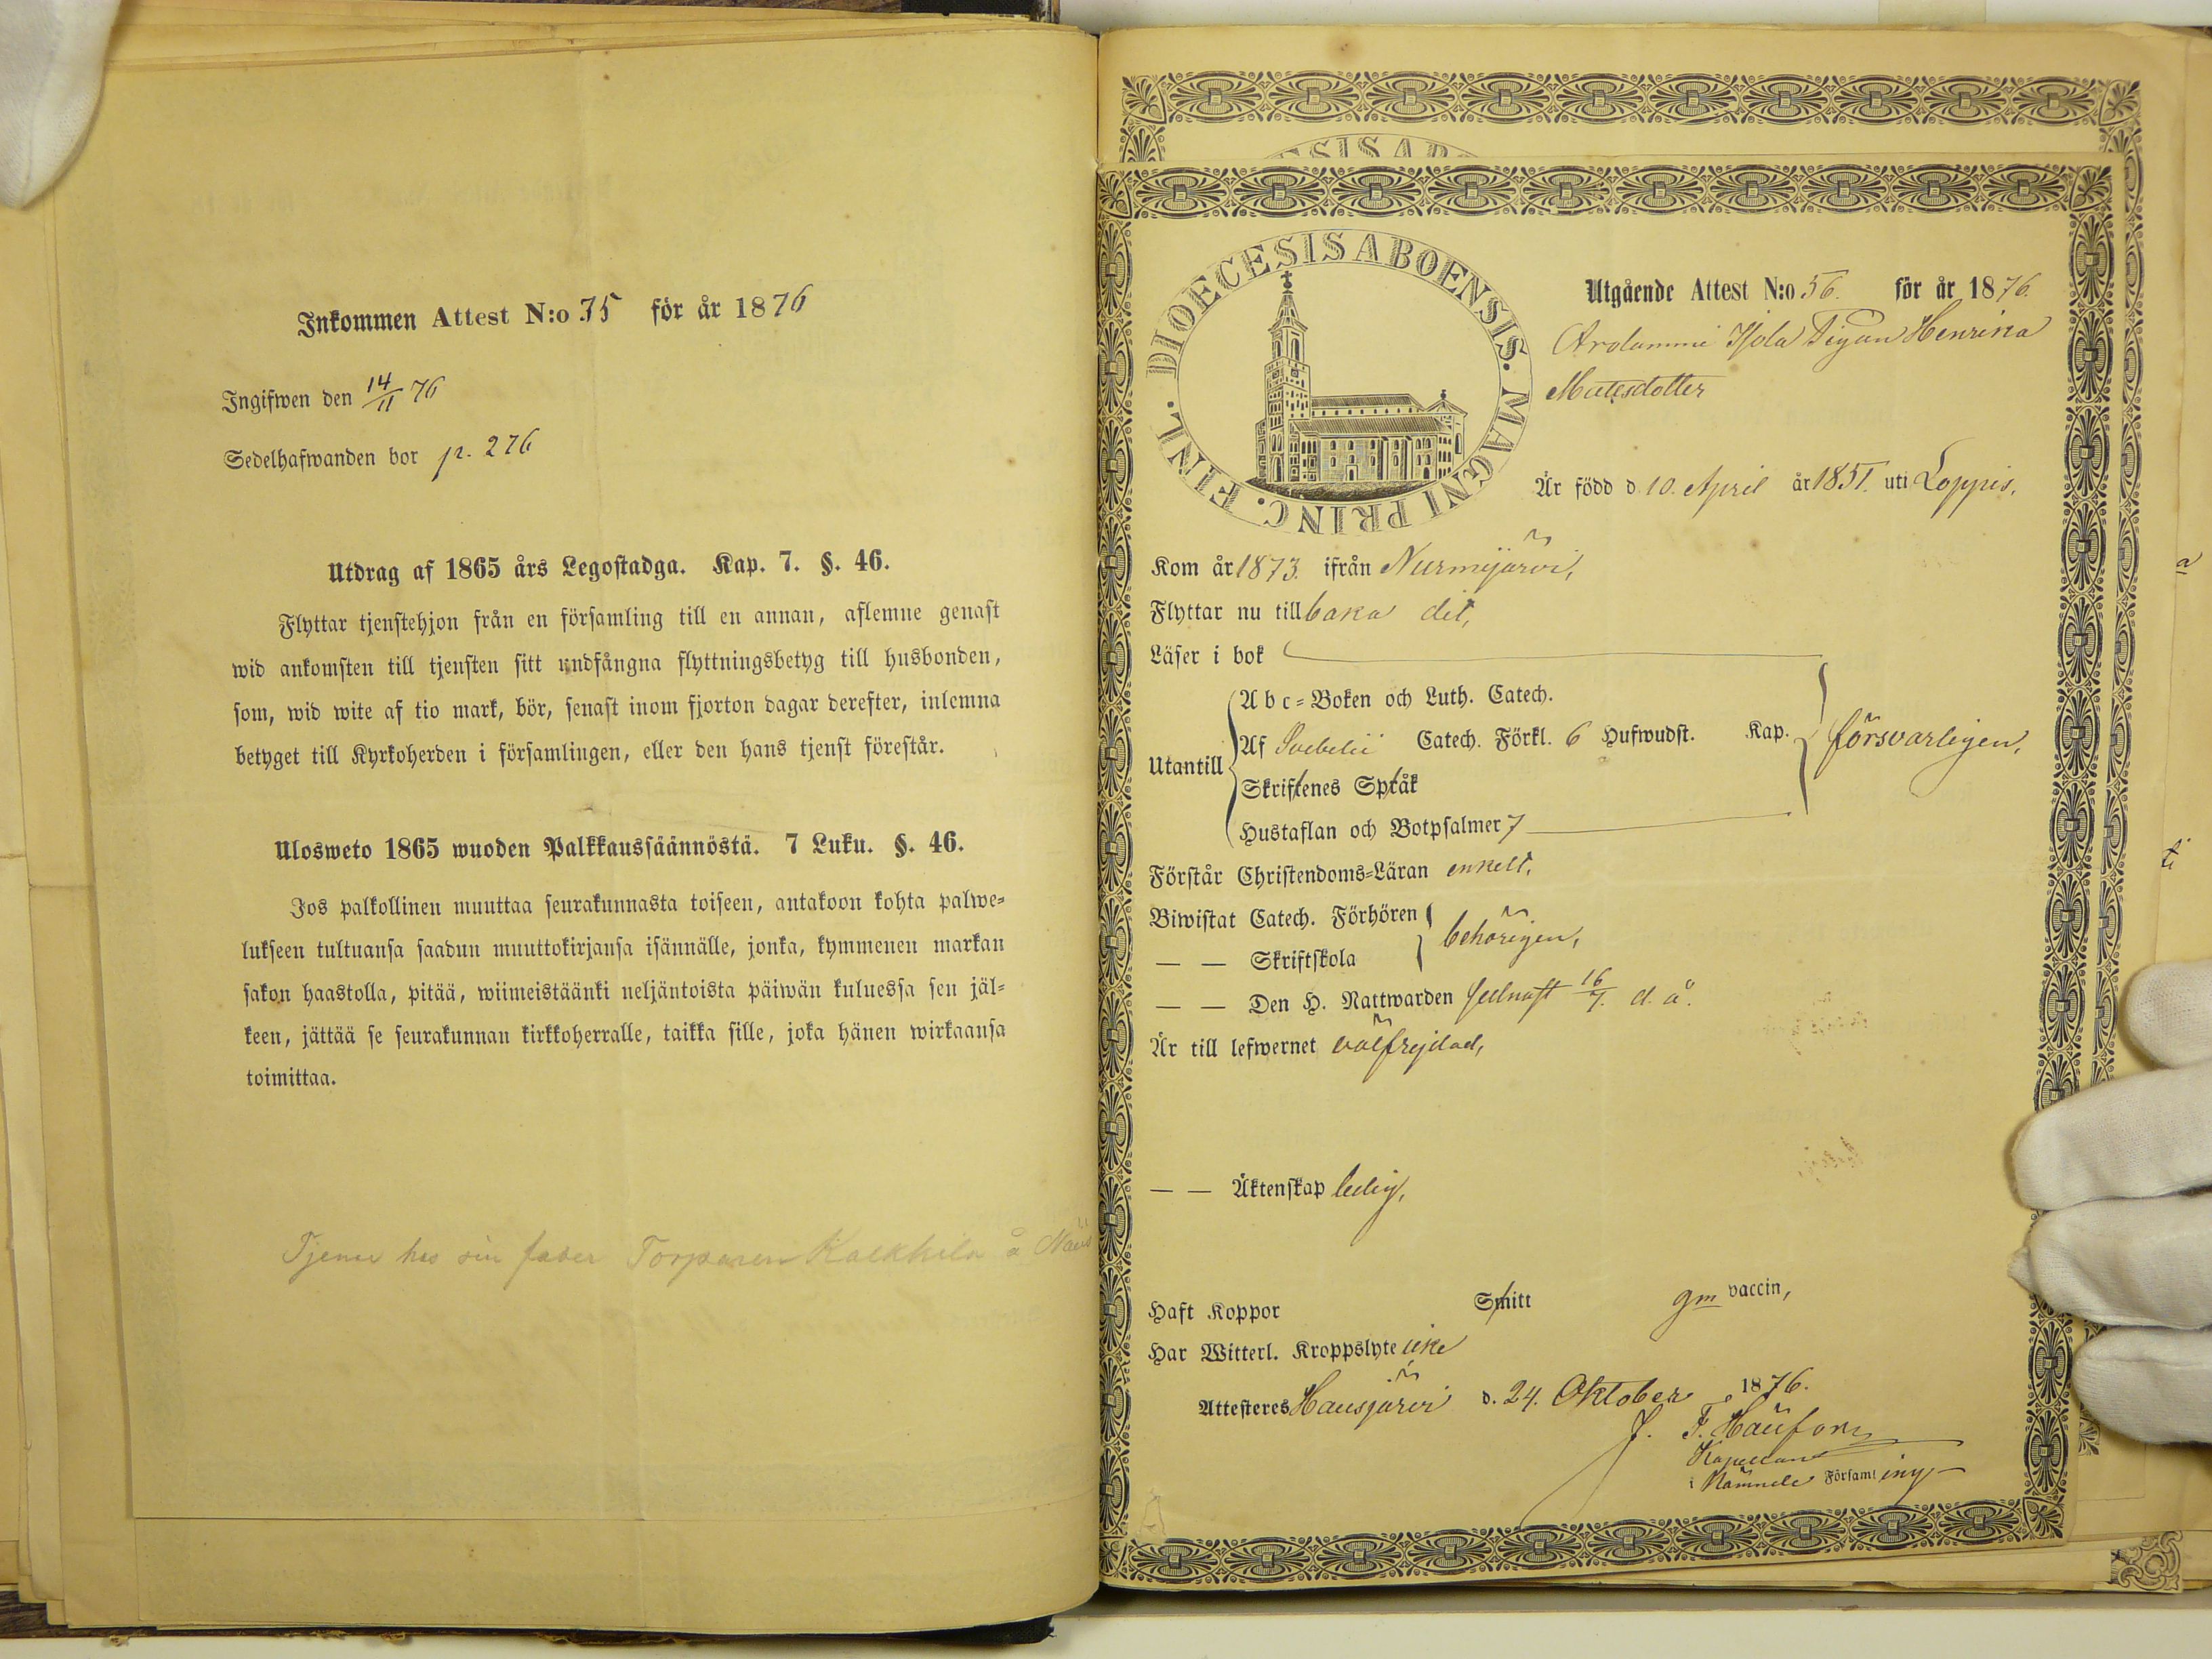 Inkommen Attest N:o 75 för år 1876
Ingifwen den 14/11 76
Sedelhafwanden bor p. 276
Utdrag af 1865 års Legostadga. Kap. 7. §. 46.
Flyttar tjenstehjon från en församling till en annan, aflemne genast
wid ankomsten till tjensten sitt undfångna flyttningsbetyg till husbonden,
som, wid wite af tio mark, bör, senast inom fjorton dagar derefter, inlemna
betyget till Kyrkoherden i församlingen, eller den hans tjenst förestår.
Ulosweto 1865 wuoden Palkkaussäännöstä. 7 Luku. §. 46.
Jos palkollinen muuttaa seurakunnasta toiseen, antakoon kohta palwe-
lukseen tultuansa saadun muuttokirjansa isännälle, jonka, kymmenen markan
sakon haastolla, pitää, wiimeistäänki neljäntoista päiwän kuluessa sen jäl-
keen, jättää se seurakunnan kirkkoherralle, taikka sille, joka hänen wirkaansa
toimittaa.
Tjenar hos sin fader Torparen å
DIOECESIS ABOENSIS. MAGNI PRINC. FINL.
Utgående Attest N:o 56. för år 1876.
Arolammi Isola Pigan Henrika
Matsdotter
Är född d. 10. April år 1851. uti Loppis,
Kom år 1873. ifrån Nurmijärvi,
Flyttar nu tillbaka dit,
Läser i bok
Utantill
Abc-Boken och Luth. Catech.
Af Svebelii Catech. Förkl. 6 Hufwudst. Kap.
försvarligen,
Skriftenes Språk
Hustaflan och Botpsalmer 7
Förstår Christendoms-Läran enkelt,
Biwistat Catech. Förhören
behörigen,
— — Skriftskola
— — Den H. Nattwarden sednast 16/7. d. å.
Är till lefwernet välfrejdad,
— — Äktenskap ledig,
Haft Koppor Smitt gm vaccin,
Har Witterl. Kroppslyte icke
Attesteres Hausjärvi d. 24. Oktober 1876.
J. F.
Kapellan
i Nämnde Församling